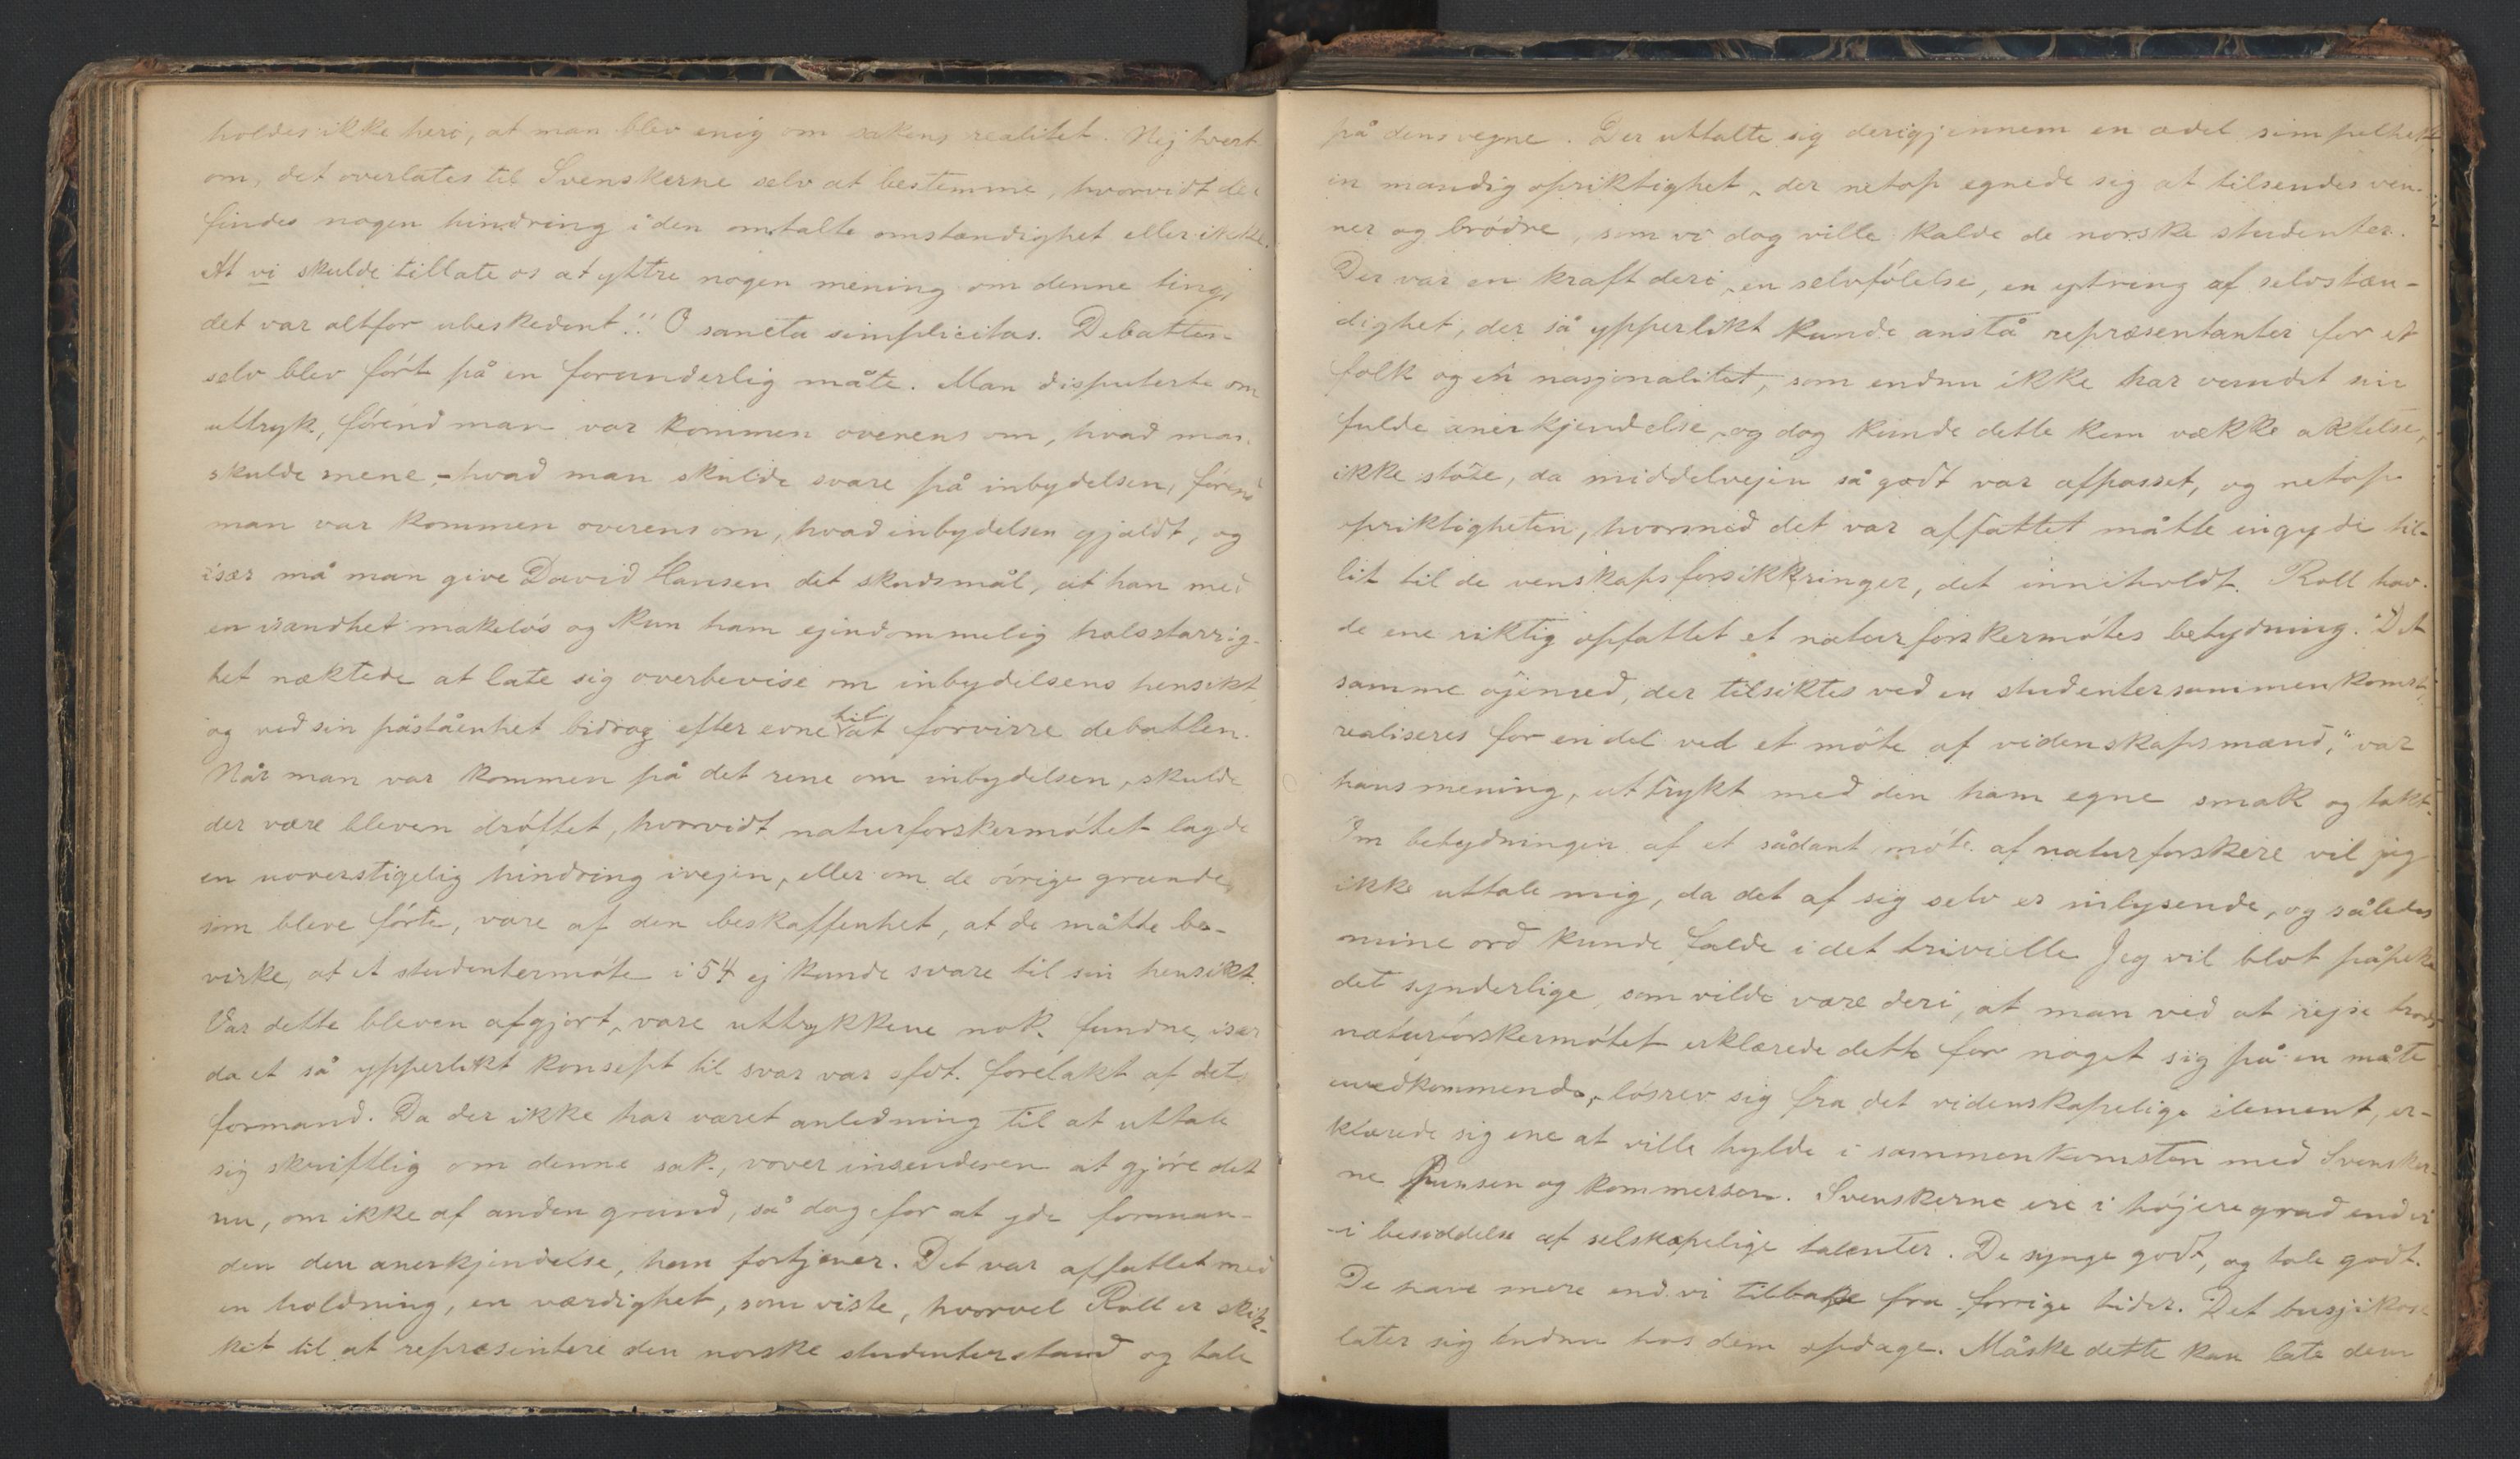 holdes ikke heri, at man blev enig om sakens realitet. Nej tvert
om, det overlates til Svenskerne selv at bestemme, hvorvidt der
findes nogen hindring i den omtalte omstændighet eller ikke.
At vi skulde tillate os at yttre nogen mening om denne ting,
det var altfor ubeskedent!! O sancta simplicitas. Debatten
selv blev fört på en forunderlig måte. Man disputerte om
uttryk, förend man var kommen overens om, hvad man
skulde mene, – hvad man skulde svare på inbydelsen, förend
man var kommen overens om, hvad inbydelsen gjaldt, og
især må man give David Hansen det skudsmål, at han med
en isandhet makelös og kun ham ejendommelig halsstarrig-
het næktede at late sig overbevise om inbydelsens hensikt
og ved sin påståenhet bidrog efter evne til at forvirre debatten.
Når man var kommen på det rene om inbydelsen, skulde
der være bleven dröftet, hvorvidt naturforskermötet lagde
en uoverstigelig hindring ivejen, eller om de övrige grunde,
som bleve förte, vare af den beskaffenhet, at de måtte be-
virke, at et studentermöte i 54 ej kunde svare til sin hensikt.
Var dette bleven afgjort, vare uttrykkene nok fundne, især
da et så ypperlikt konsept til svar var sfdt. forelakt af dets
formand. Da der ikke har været anledning til at uttale
sig skriftlig om denne sak, vover insenderen at gjöre det
nu, om ikke af anden grund, så dog for at yde forman-
den den anerkjendelse, han fortjener. Det var affattet med
en holdning, en værdighet, som viste, hvorvel Roll er skik-
ket til at repræsentere den norske studenterstand og tale
på dens vegne. Der uttalte sig derigjennem en ædel simpelhet,
en mandig opriktighet, der netop egnede sig at tilsendes ven-
ner og brödre, som vi dog ville kalde de norske studenter.
Der var en kraft deri, en selvfölelse, en ytring af selvstæn-
dighet, der så ypperlikt kunde anstå repræsentanter for et
folk og en nasjonalitet, som endnu ikke har vundet sin
fulde anerkjendelse, og dog kunde dette kun vække aktelse,
ikke stöte, da middelvejen så godt var afpasset, og netop
opriktigheten, hvormed det var affattet måtte ingyde til-
lit til de venskapsforsikkringer, det inneholdt. Roll hav-
de ene riktig opfattet et naturforskermötes betydning. "Det
samme öjemed, der tilsiktes ved en studentersammenkomst,
realiseres for en del ved et möte af videnskapsmænd," var
hans mening, uttrykt med den ham egne smak og takt.
Om betydningen af et sådant möte af naturforskere vil jeg
ikke uttale mig, da det af sig selv er inlysende, og således
mine ord kunde falde i det trivielle. Jeg vil blot påpeke
det synderlige, som vilde være deri, at man ved at rejse trods
naturforskermötet erklærede dette for noget sig på en måte
uvedkommende, lösrev sig fra det videnskapelige element, er-
klærede sig ene at ville hylde i sammenkomsten med Svensker-
ne Punsen og kommersen. Svenskerne ere i höjere grad end vi
i besiddelse af selskapelige talenter. De synge godt, og tale godt.
De have mere end vi tilbake fra forrige tider. Det busjikose
later sig endnu hos dem opdage. Måske dette kan late dem